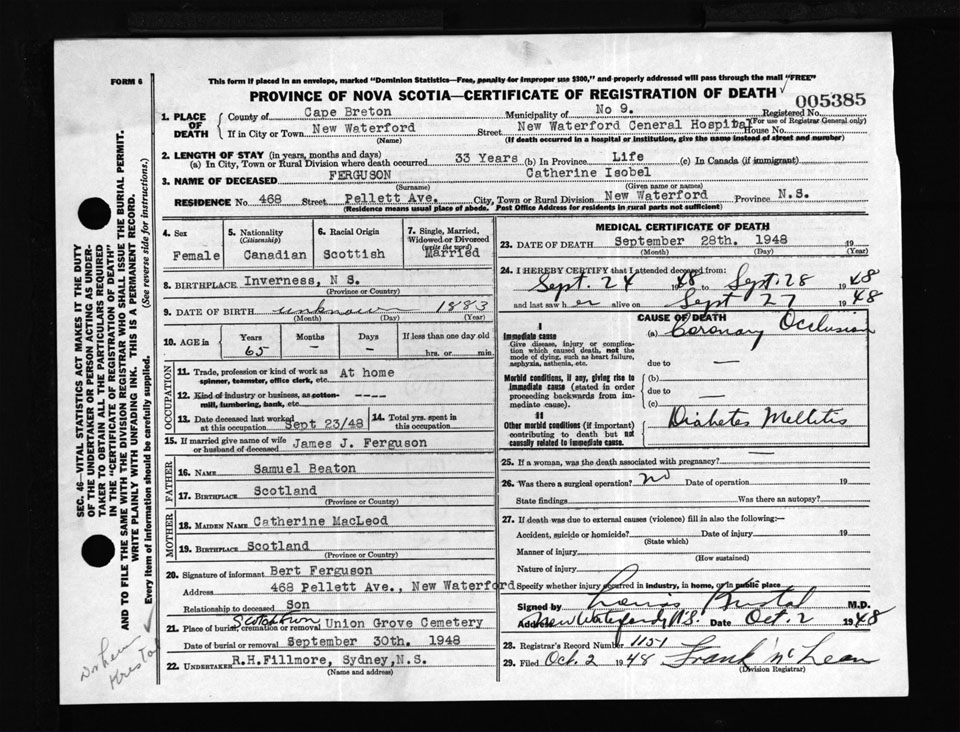 FORM 6
This form if placed in an envelope, marked "Dominion Statistics—Free, penalty for improper use $300," and properly addressed will pass through the mail "FREE"
PROVINCE OF NOVA SCOTIA—CERTIFICATE OF REGISTRATION OF DEATH
005385
1. PLACE OF DEATH
County of Cape Breton Municipality of No 9. Registered No.
(For use of Registrar General only)
If in City or Town New Waterford Street New Waterford General Hospital House No.
(Name) (If death occurred in a hospital or institution, give the name instead of street and number)
2. LENGTH OF STAY (in years, months and days)
(a) In City, Town or Rural Division where death occurred 33 Years (b) In Province Life (c) In Canada (if immigrant)
3. NAME OF DECEASED FERGUSON Catherine Isobel
(Surname) (Given name or names)
RESIDENCE No. 468 Street Pellett Ave. City, Town or Rural Division New Waterford Province N.S.
(Residence means usual place of abode. Post Office Address for residents in rural parts not sufficient)
4. Sex
Female
5. Nationality
(Citizenship)
Canadian
6. Racial Origin
Scottish
7. Single, Married, Widowed or Divorced
(write the word)
Married
8. BIRTHPLACE Inverness, N S.
(Province or Country)
9. DATE OF BIRTH unknown 1883
(Month) (Day) (Year)
10. AGE in Years Months Days If less than one day
65 - - hrs. or min.
OCCUPATION
11. Trade, profession or kind of work as At home
spinner, teamster, office clerk, etc.
12. Kind of industry or business, as cotton- ----
mill, lumbering, bank, etc.
13. Date deceased last worked at this occupation Sept 23/48
14. Total yrs. spent in this occupation
15. If married give name of wife or husband of deceased James J. Ferguson
FATHER
16. NAME Samuel Beaton
17. BIRTHPLACE Scotland
(Province or Country)
MOTHER
18. MAIDEN NAME Catherine MacLeod
19. BIRTHPLACE Scotland
(Province or Country)
20. Signature of informant Bert Ferguson
Address 468 Pellett Ave., New Waterford
Relationship to deceased Son
Scotchtown
21. Place of burial, cremation or removal Union Grove Cemetery
Date of burial or removal September 30th. 1948
22. UNDERTAKER R.H.Fillmore, Sydney,N.S.
(Name and address)
MEDICAL CERTIFICATE OF DEATH
23. DATE OF DEATH September 28th. 1948 19
(Month) (Day) (Year)
24. I HEREBY CERTIFY that I attended deceased from:
Sept. 24 1948 to Sept. 28 1948
and last saw her alive on Sept 27 1948
CAUSE OF DEATH
I
Immediate cause
Give disease, injury or complication which caused death, not the mode of dying, such as heart failure, asphyxia, asthenia, etc.
(a) Coronary Occlusion
due to —
Morbid conditions, if any, giving rise to immediate cause (stated in order proceeding backwards from immediate cause).
(b)
due to —
(c)
II
Other morbid conditions (if important) contributing to death but not causally related to immediate cause.
Diabetes Mellitis
25. If a woman, was the death associated with pregnancy? —
26. Was there a surgical operation? no Date of operation 19
State findings Was there an autopsy?
27. If death was due to external causes (violence) fill in also the following:—
Accident, suicide or homicide? Date of injury 19
(State which)
Manner of injury
(How sustained)
Nature of injury
Specify whether injury occurred in industry, in home, or in public place
Signed by M.D.
Address New Waterford, N.S. Date Oct. 2 1948
28. Registrar's Record Number 1151
29. Filed Oct. 2 1948 Frank McLean
(Division Registrar)
SEC. 46—VITAL STATISTICS ACT MAKES IT THE DUTY
OF THE UNDERTAKER OR PERSON ACTING AS UNDER-
TAKER TO OBTAIN ALL THE PARTICULARS REQUIRED
IN THE "CERTIFICATE OF REGISTRATION OF DEATH"
AND TO FILE THE SAME WITH THE DIVISION REGISTRAR WHO SHALL ISSUE THE BURIAL PERMIT.
WRITE PLAINLY WITH UNFADING INK. THIS IS A PERMANENT RECORD.
Every item of Information should be carefully supplied. (See reverse side for instructions.)